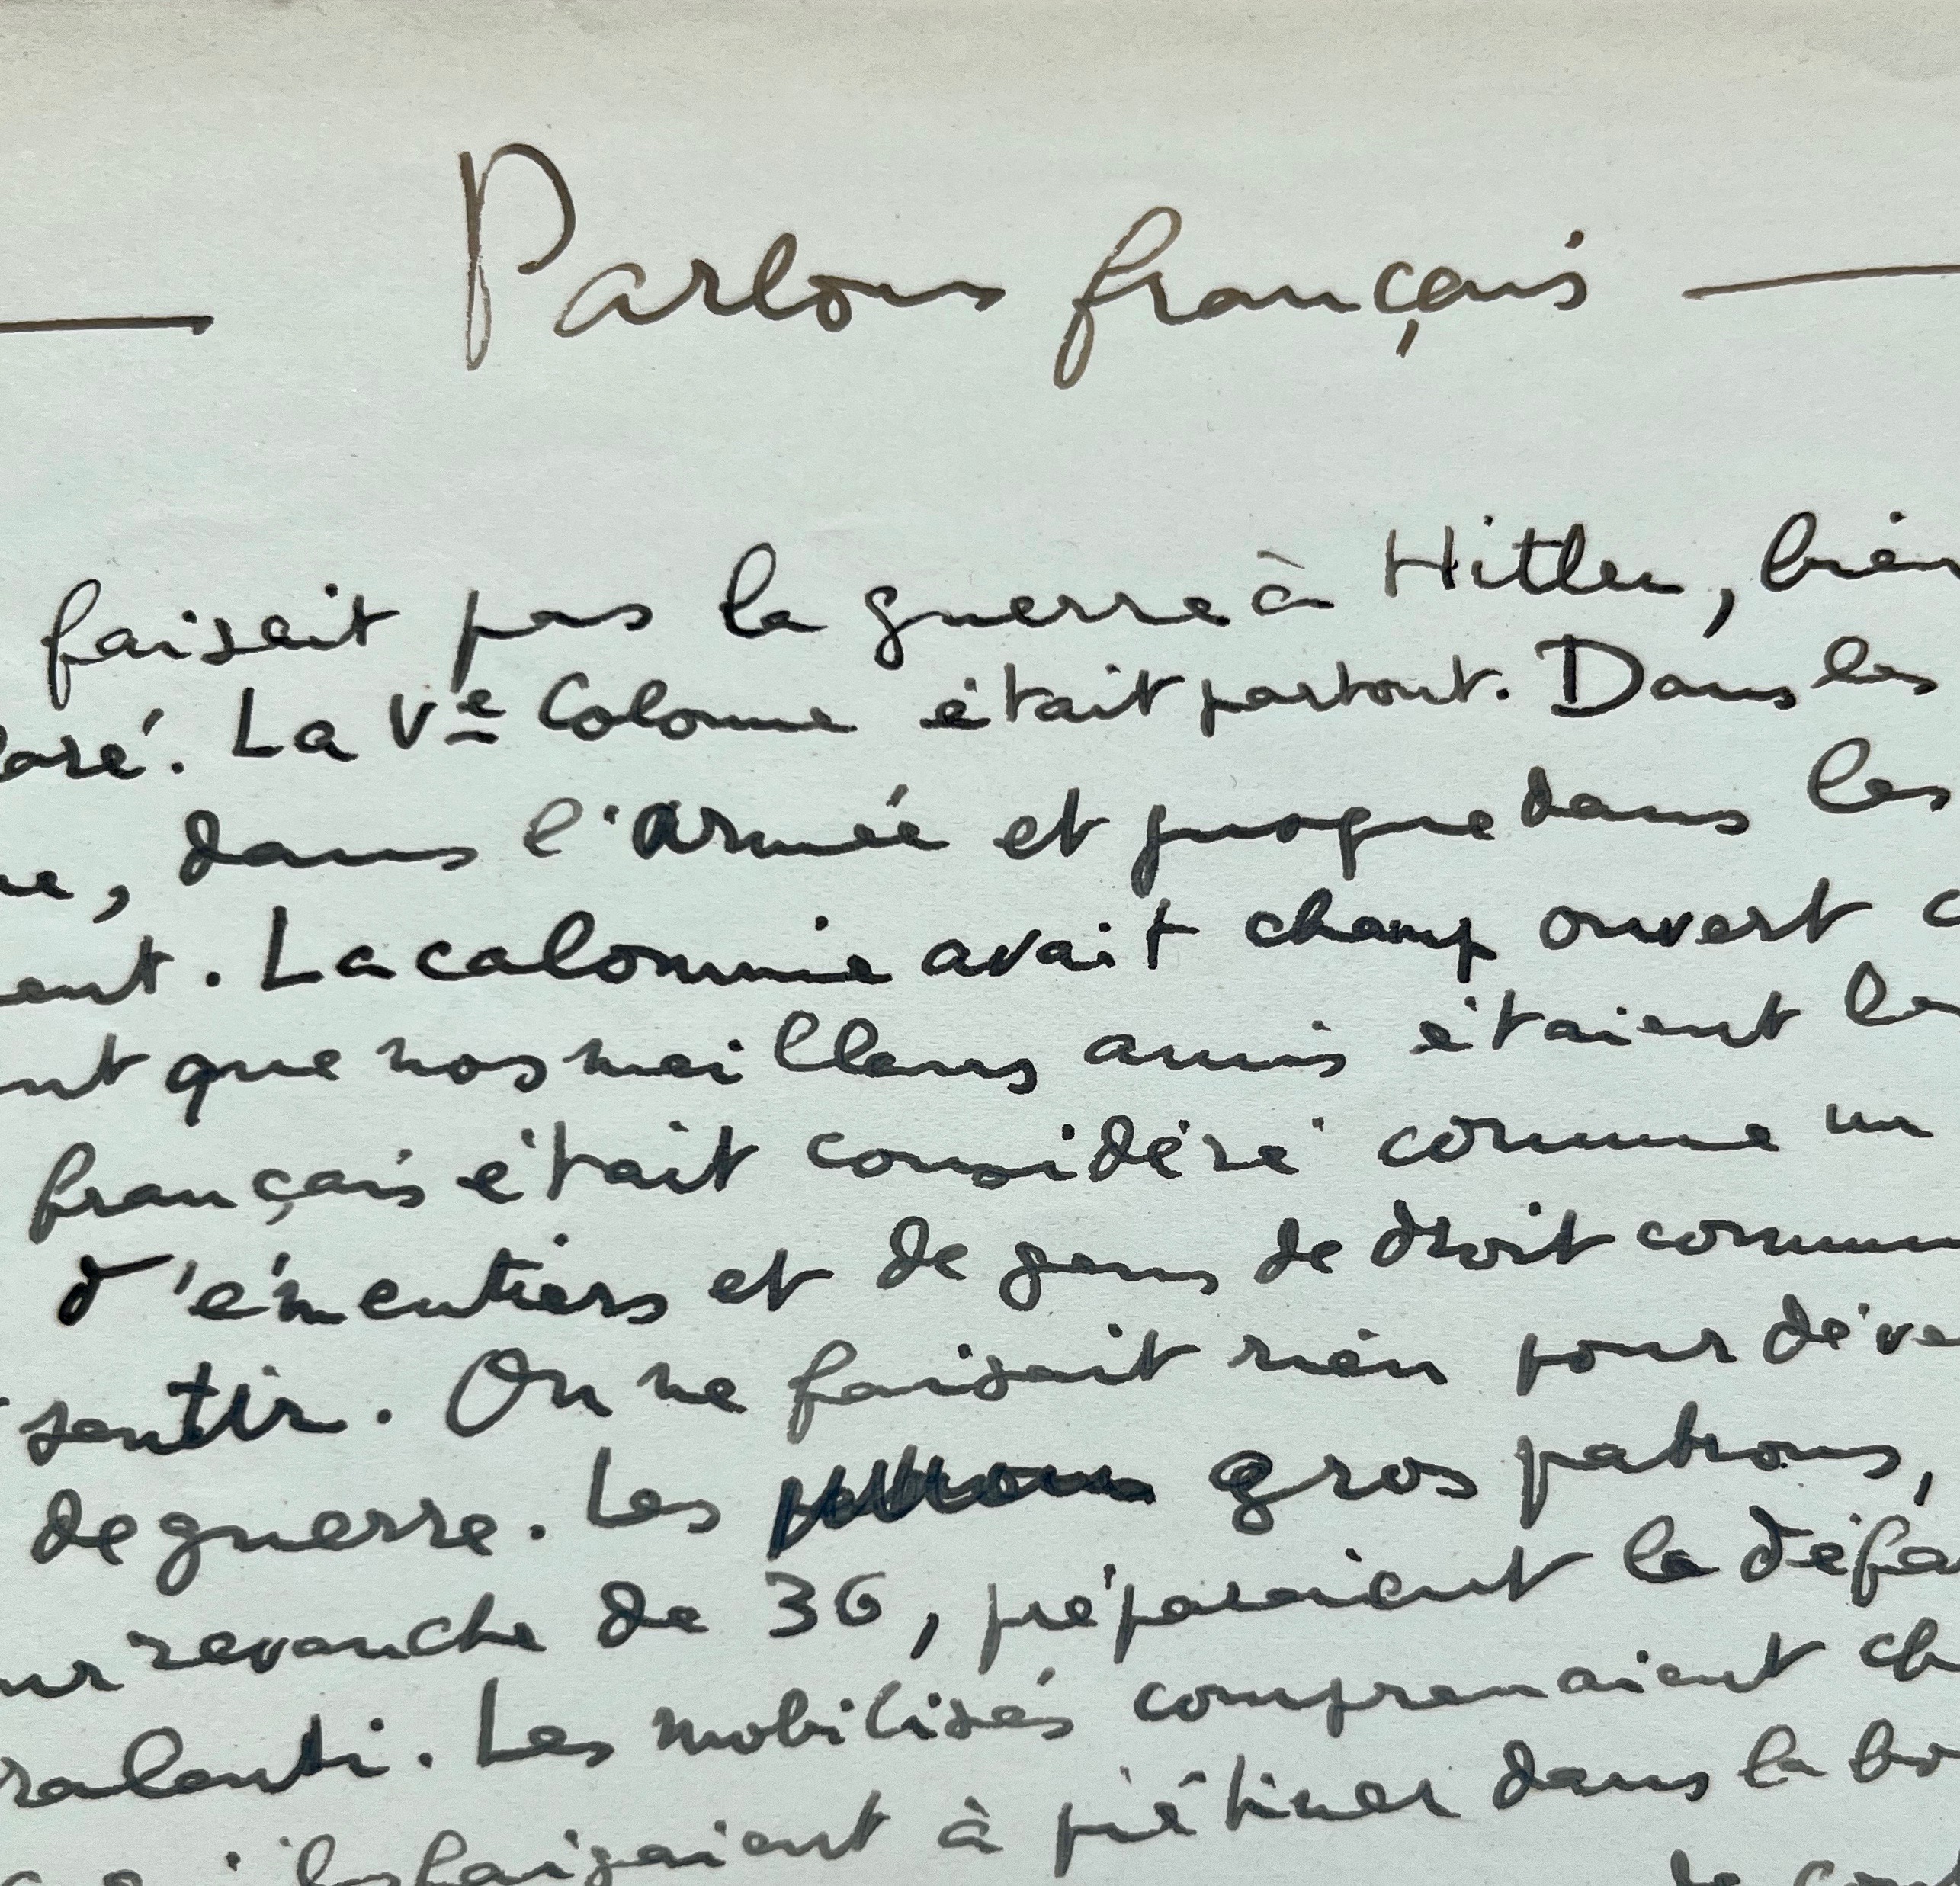 — Parlons français —
faisait pas la guerre à Hitler, bien
laré. La Ve Colonne était partout. Dans les
ne, dans l'armée et jusque dans les
ent. La calomnie avait champ ouvert
nt que nos meilleurs amis étaient le
français était considéré comme un
d'émeutiers et de gens de droit commun
sentir. On ne faisait rien pour déve
de guerre. Les gros patrons,
ur revanche de 36, préparaient la défa
ralenti. Les mobilisés comprenaient ch
à piétiner dans la bo